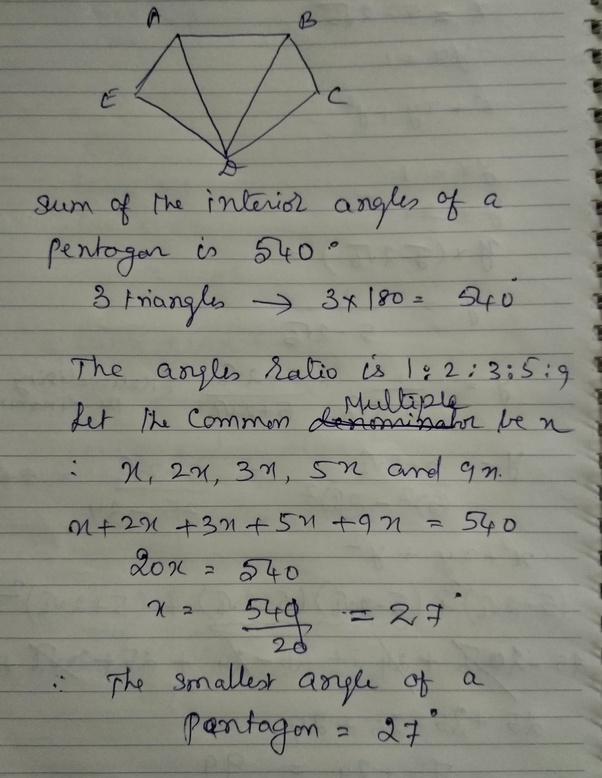 A B
E C
D
Sum of the interior angles of a
pentagon is 540°
3 triangles → 3x180 = 540°
The angles ratio is 1:2:3:5:9
Multiple
Let the Common denominator be x
∴ x, 2x, 3x, 5x and 9x.
x+2x+3x+5x+9x = 540
20x = 540
x = 540/20 = 27°
∴ The smallest angle of a
pentagon = 27°